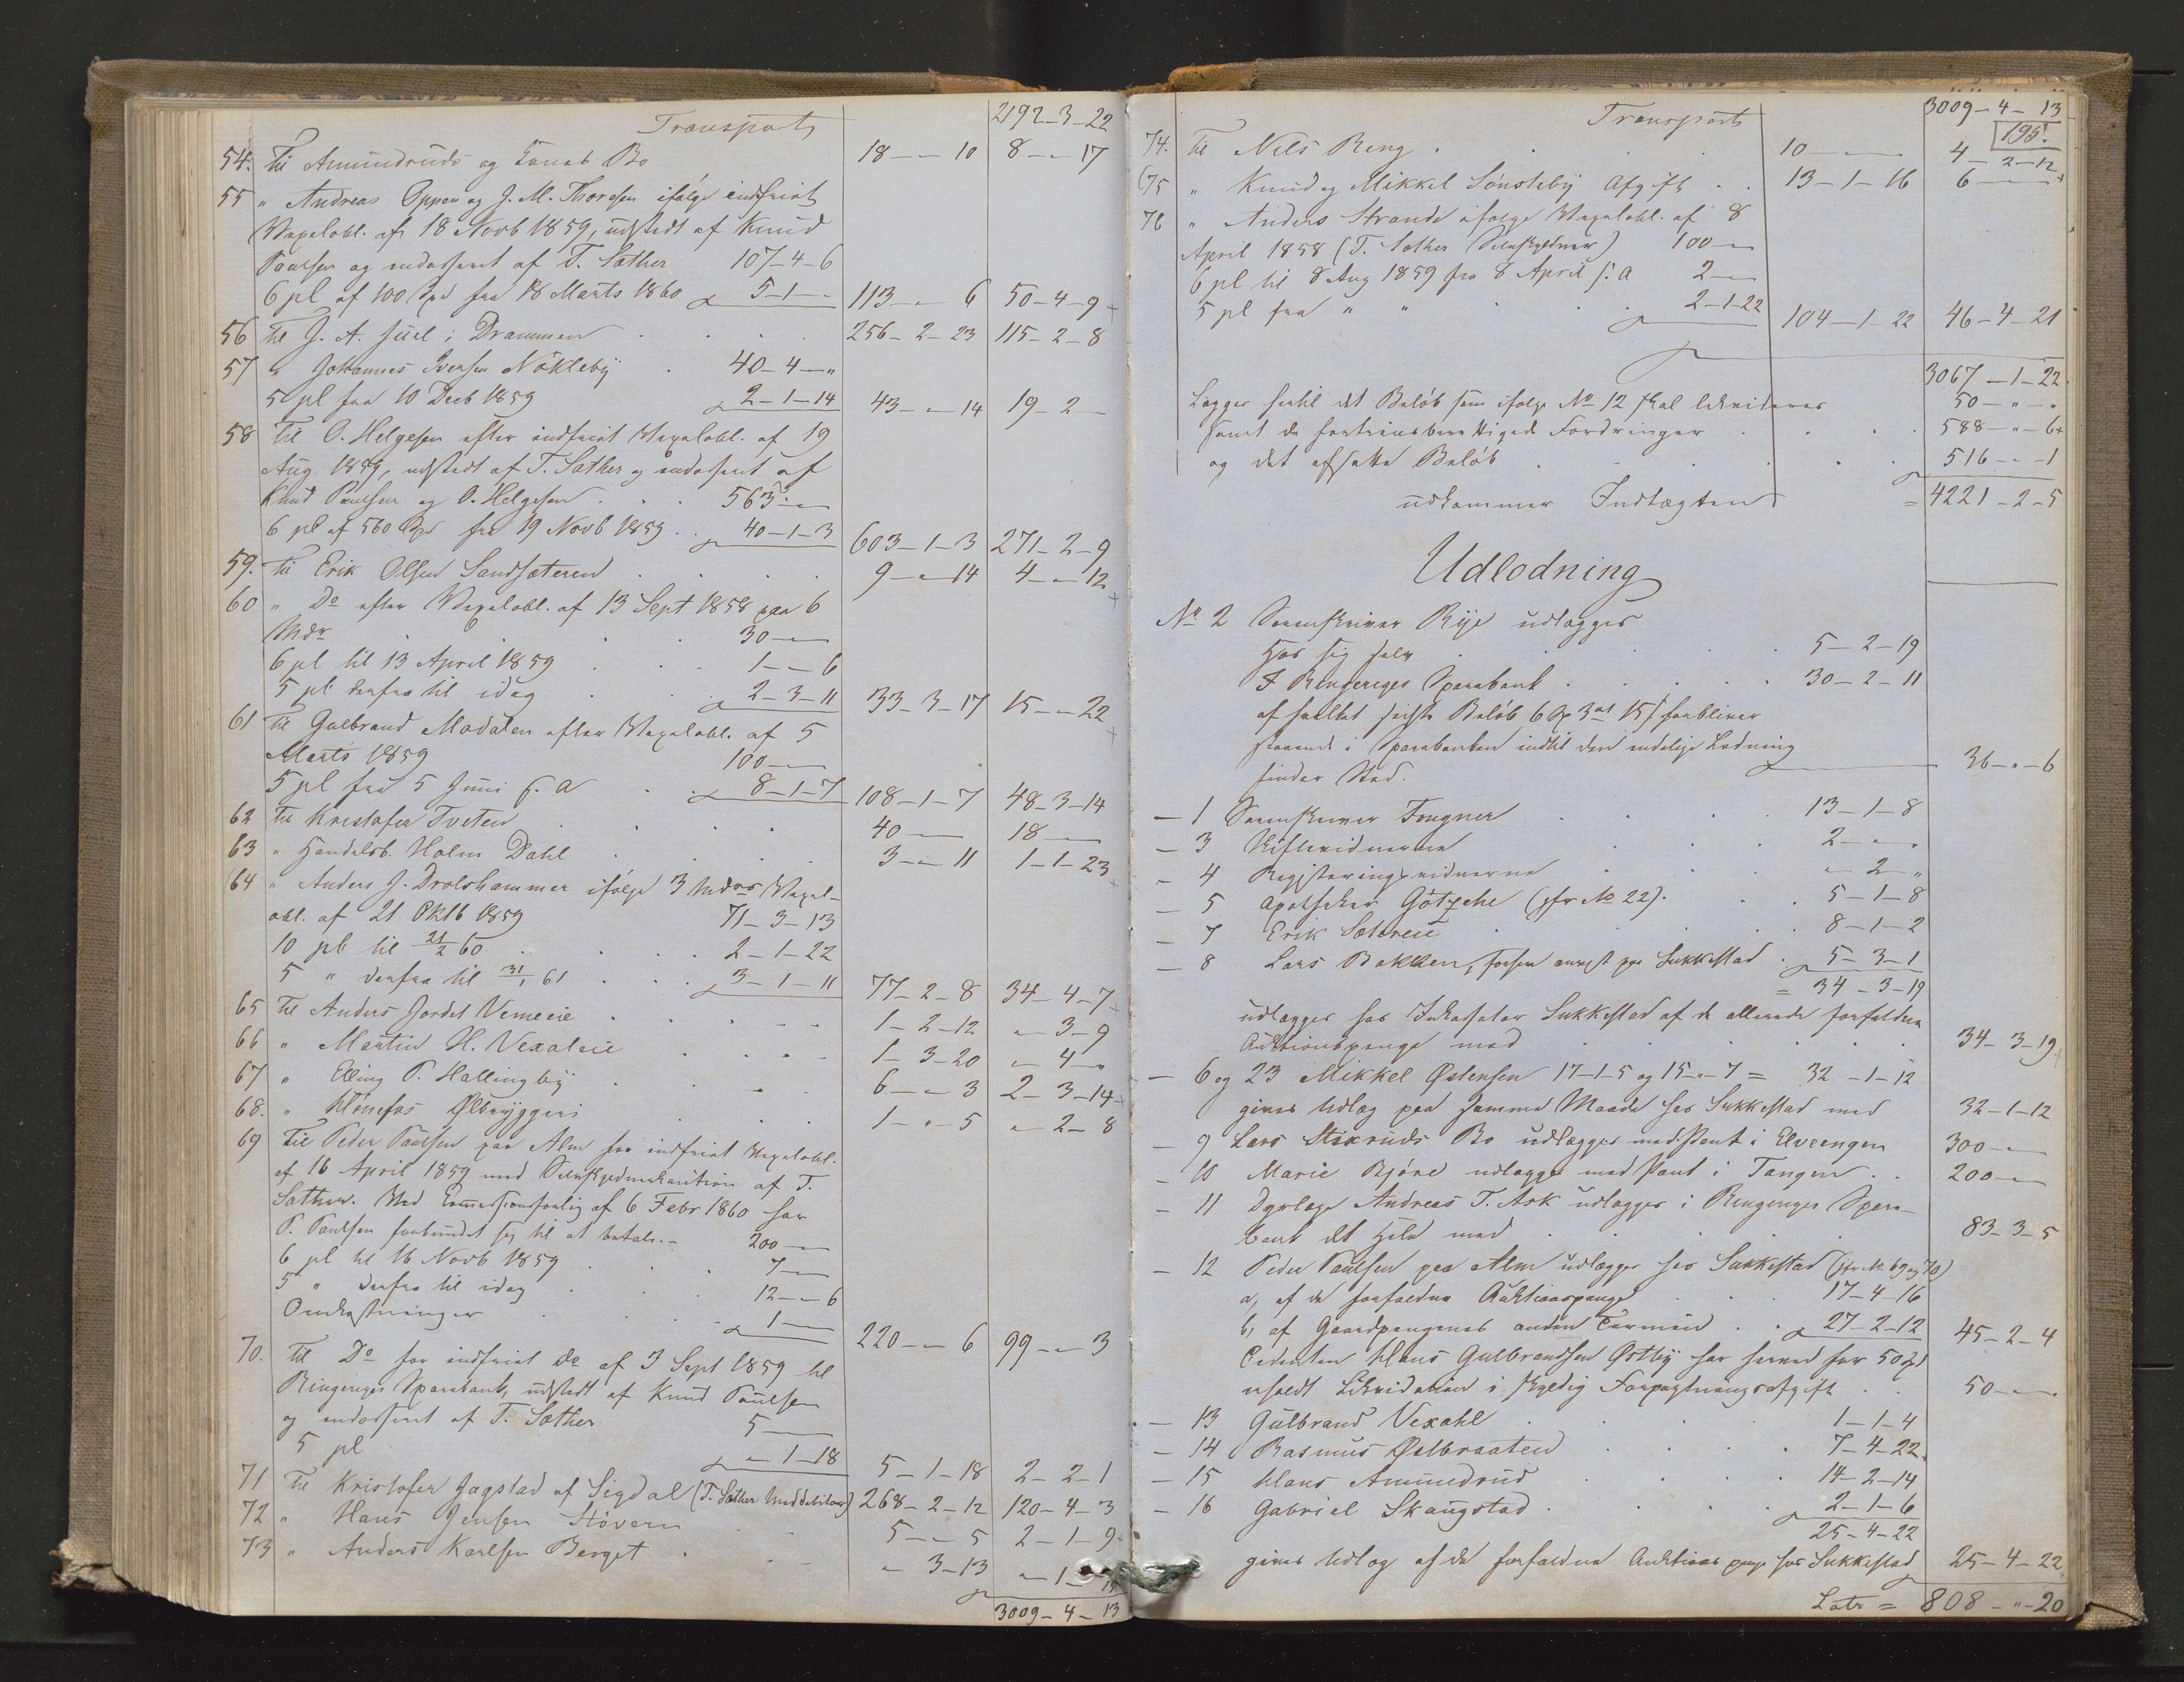 Transport 2192-3-22
54. Til Amundruds og Kones Bo 18 - " - 10 8 - " - 17
55 " Andreas Oppen og J. M. Thoresen ifølge indfriet
Vexelobl. af 18 Novb 1859, udstedt af Knud
Paulsen og endosseret af T. Sæther 107-4-6
6 pC af 100 Spd fra 18 Marts 1860 5-1-" 113 - " - 6 50-4-9
56 Til J. A. Juel i Drammen 256-2-23 115-2-8
57 " Johannes Iversen Nökleby 40-4-"
5 pC fra 10 Decb 1859 2-1-14 43 - " - 14 19-2-
58 Til O. Helgesen efter indfriet Vexelobl. af 19
Aug. 1859, udstedt af T. Sæther og endosseret af
Knud Paulsen og O. Helgesen 563 - "
6 pC af 560 Spd fra 19 Novb 1859 40-1-3 603-1-3 271-2-9
59. Til Erik Olsen Sandsæteren 9 - " - 14 4 - " - 12
60 " Do efter Vexelobl. af 13 Sept 1858 paa 6
Mdr 30 - "
6 pC til 13 April 1859 1 - " - 6
5 pC derfra til idag 2-3-11 33-3-17 15 - " - 22
61 Til Gulbrand Modalen efter Vexelobl. af 5
Marts 1859 100 - "
5 pC fra 5 Juni s. A 8-1-7 108-1-7 48-3-14
62 Til Kristofer Tveten 40 - " 18 - "
63 " Handelsb. Holm Dahl 3 - " - 11 1-1-23
64 " Anders J. Drolshammer ifølge 3 Mdrs Vexel-
obl. af 21 Oktb 1859 71-3-13
10 pC til 21/2 60 2-1-22
5 " derfra til 31/1 61 3-1-11 77-2-8 34-4-7
65 Til Anders Jordet Vemeeie 1-2-12 " - 3-9
66 " Martin H. Vexaleie 1-3-20 " - 4 - "
67 " Elling P. Hallingby 6 - " - 3 2-3-14
68. " Hönefos Ølbryggeri 1 - " - 5 " - 2-8
69 Til Peder Paulsen paa Alm for indfriet Vexelobl.
af 16 April 1859 med Selvskyldnerkaution af T.
Sæther. Ved Commissionsforlig af 6 Febr 1860 har
P. Paulsen forbundet sig til at betale. - 200 - "
6 pC til 16 Novb 1859 7 - "
5 " derfra til idag 12 - " - 6
Omkostninger 1 - " 220 - " - 6 99 - " - 3
70. Til Do for indfriet Do af 3 Sept 1859 til
Ringeriges Sparebank, udstedt af Knud Paulsen
og endosseret af T. Sæther 5 - "
5 pC " - 1-18 5-1-18 2-2-1
71 Til Kristofer Jagstad af Sigdal (T. Sæther Meddebitor) 268-2-12 120-4-3
72 " Hans Jensen Støvern 5 - " - 5 2-1-9
73 " Anders Karlsen Berget " 3-13 " - 1 - 15
3009-4-13
Transport 3009-4-13
195.
74. Til Nils Ring 10 - " 4-2-12
75 " Knud og Mikkel Sönsteby Afgift 13-1-16 6 - "
76 " Anders Strande ifølge Vexelobl. af 8
April 1858 (T. Sæther Selvskyldner) 100 - "
6 pC til 8 Aug 1859 fra 8 April s. A 2 - "
5 pC fra " " 2-1-22 104-1-22 46-4-21
3067-1-22
Lægges hertil det Beløb som ifølge No 12 skal likvideres 50 - " - "
samt de fortrinsberettigede Fordringer 588 - " - 6
og det afsatte Beløb 516 - " - 1
udkommer Indtægten = 4221-2-5
Udlodning
No 2 Sorenskriver Rye udlægges
Hos sig selv 5-2-19
I Ringeriges Sparebank 30-2-11
af hvilket sidste Beløb 6 Sp 3 ort 15 s forbliver
staaende i Sparebanken indtil den endelige Lodning
finder Sted. 36 - " - 6
- 1 Sorenskriver Fougner 13-1-8
- 3 Skiftevidnerne 2 - " - "
- 4 Registreringsvidnerne " - 2 - "
- 5 Apotheker Götzche (jfr No 22). 5-1-8
- 7 Erik Sætereie 8-1-2
- 8 Lars Bakken, forhen anvist paa Sukkestad 5-3-1
= 34-3-19
udlægges hos Inkassator Sukkestad af de allerede forfaldne
Auktionspenge med 34-3-19
- 6 og 23 Mikkel Østensen 17-1-5 og 15 - " - 7 = 32-1-12
gives Udlæg paa samme Maade hos Sukkestad med 32-1-12
- 9 Lars Stixruds Bo udlægges med Pant i Elveengen 300 - "
- 10 Marie Björe udlægges med Pant i Tangen 200 - "
- 11 Dyrlæge Andreas T. Ask udlægges i Ringeriges Spare-
bank det Hele med 83-3-5
- 12 Peder Paulsen paa Alm udlægges hos Sukkestad (jfr No 69 og 70)
a, af de forfaldne Auktionspenge 17-4-16
b, af Gaardpengenes anden Termin 27-2-12 45-2-4
Cedenten Hans Gulbrandsen Østby har herved for 50 Spd
erholdt Likvidation i skyldig Forpagtningsafgift 50 - "
- 13 Gulbrand Vexahl 1-1-4
- 14 Rasmus Ølbraaten 7-4-22
- 15 Hans Amundrud 14-2-14
- 16 Gabriel Skaugstad 2-1-6
25-4-22
gives Udlæg af de forfaldne Auktionspenge hos Sukkestad 25-4-22
Latr = 808 - " - 20